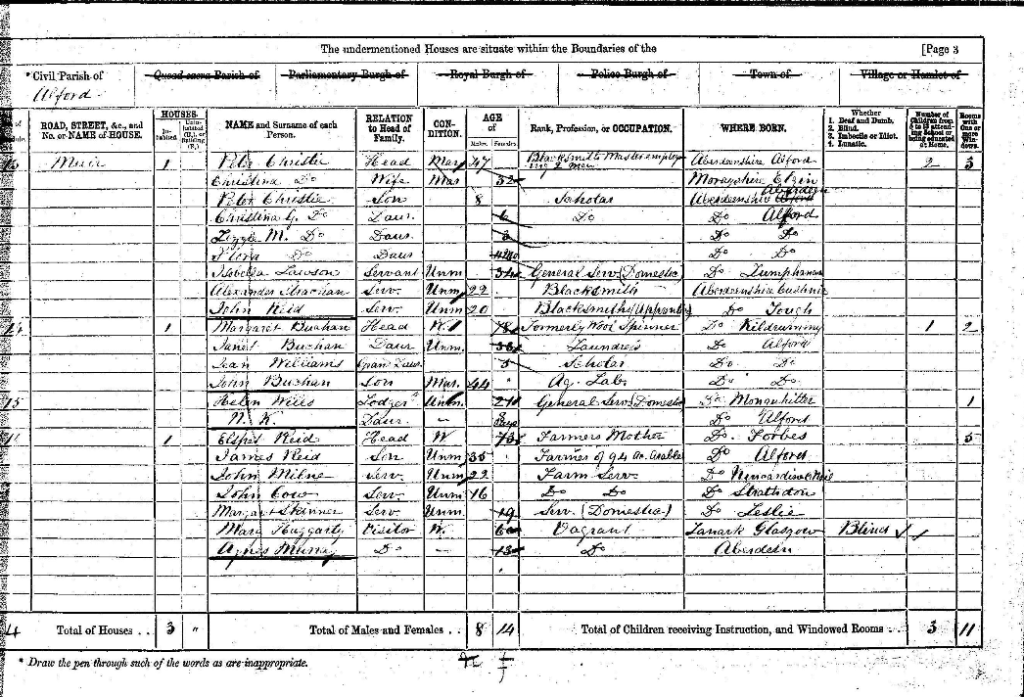 The undermentioned Houses are situate within the Boundaries of the [Page 3
*Civil Parish of Quoad sacra Parish of Parliamentary Burgh of Royal Burgh of Police Burgh of Town of Village or Hamlet of
Alford
ROAD, STREET, &c., and No. or NAME of HOUSE. HOUSES. Inhabited. Uninhabited (U.), or Building (B.) NAME and Surname of each Person. RELATION to Head of Family. CONDITION. AGE of Males. Females. Rank, Profession, or OCCUPATION. WHERE BORN. Whether 1. Deaf and Dumb. 2. Blind. 3. Imbecile or Idiot. 4. Lunatic. Number of Children from 5 to 13 attending School or being educated at Home. Rooms with One or more Windows.
Muir 1 Peter Christie Head Mar 47 Blacksmith Master employing 2 men Aberdeenshire Alford 2 3
Christina Do Wife Mar 32 Morayshire Elgin
Peter Christie Son 8 Scholar Aberdeenshire Aberdeen
Christina G. Do Daur. 6 Do Do Alford
Lizzie M. Do Daur. 3 Do Do
Flora Do Daur Do Do
Isabella Lawson Servant Unm General Serv (Domestic) Do Lumphanan
Alexander Strachan Serv. Unm 22 Blacksmith Aberdeenshire Cushnie
John Reid Serv. Unm 20 Blacksmith (Apprentice) Do Tough
14 1 Margaret Buchan Head W. 78 Formerly Wool Spinner Do Kildrummy 1 2
Janet Buchan Daur Unm. Laundress Do Alford
Jean Williams Gran Daur. 5 Scholar Do. Do
John Buchan Son Mar. 44 Ag. Lab. Do Do.
15 Helen Lodger Unm. General Serv (Domestic) Do Monquhitter 1
N. K. Daur. — Days Do Alford
1 Elspet Reid Head W. 73 Farmers Mother Do. Forbes 5
James Reid Son Unm 35 Farmer of 94 Ac. Arable Do Alford
John Milne Serv. Unm 22 Farm Serv. Do
John Cow Serv. Unm 16 Do Do Do Strathdon
Margart Skinner Serv Unm. 19 Serv. (Domestic) Do Leslie
Mary Haggarty Visitor W. Vagrant Lanark Glasgow Blind
Agnes Murray Do — 13 Do Aberdeen
4 Total of Houses . . 3 " Total of Males and Females . . 8 14 Total of Children receiving Instruction, and Windowed Rooms . . 3 11
* Draw the pen through such of the words as are inappropriate.